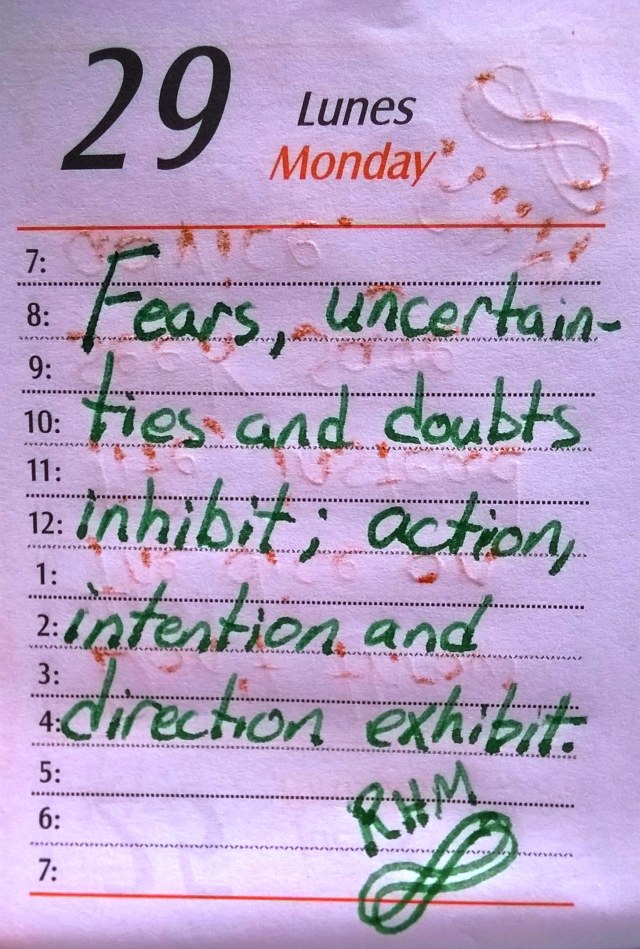 29
Lunes
Monday
7:
8: Fears, uncertain-
9:
10: ties and doubts
11:
12: inhibit; action,
1:
2: intention and
3:
4: direction exhibit.
5:
6: RHM
7: